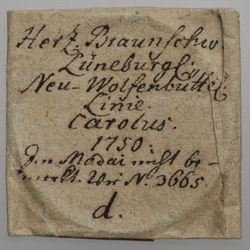 Hertz. Braunschw
Lüneburgl.
Neu-Wolfenbüttel
Linie.
Carolus.
1750.
In Madai nicht be-
merkt. Vid N. 3665
d.